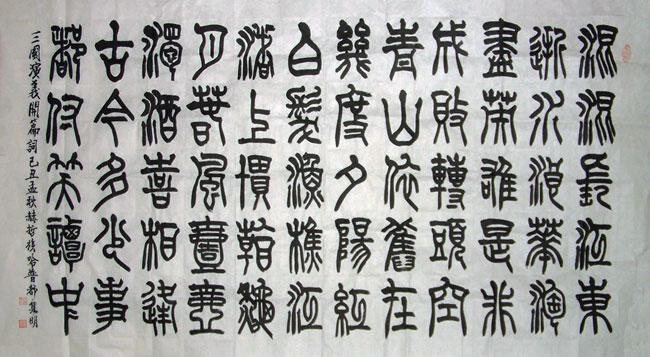 混混長江東
逝水浪華淘
盡英雄是非
成敗轉頭空
青山依舊在
幾度夕陽紅
白髮漁樵江
渚上慣看龝
月春風壹壺
濁酒喜相逢
古今多少事
都付笑談中
三國演義開篇詞己丑孟秋赫哲族哈普都雋明